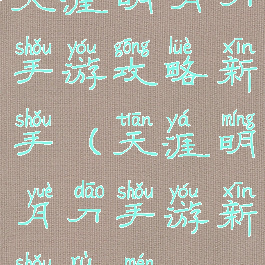 天涯明月刀
shǒu yóu gōng lüè xīn
手游攻略新
shǒu tiān yá míng
手（天涯明
yuè dāo shǒu yóu xīn
月刀手游新
shǒu rù mén